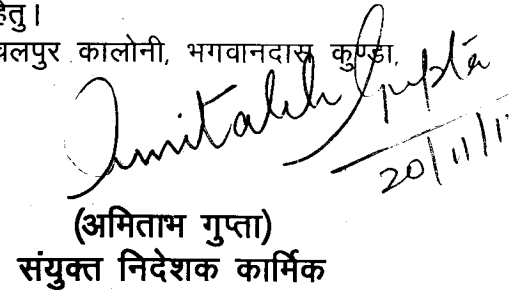 हेतु।
चलपुर कालोनी, भगवानदास कुण्डा,
Amitabh Gupta
20/11/1
(अमिताभ गुप्ता)
संयुक्त निदेशक कार्मिक